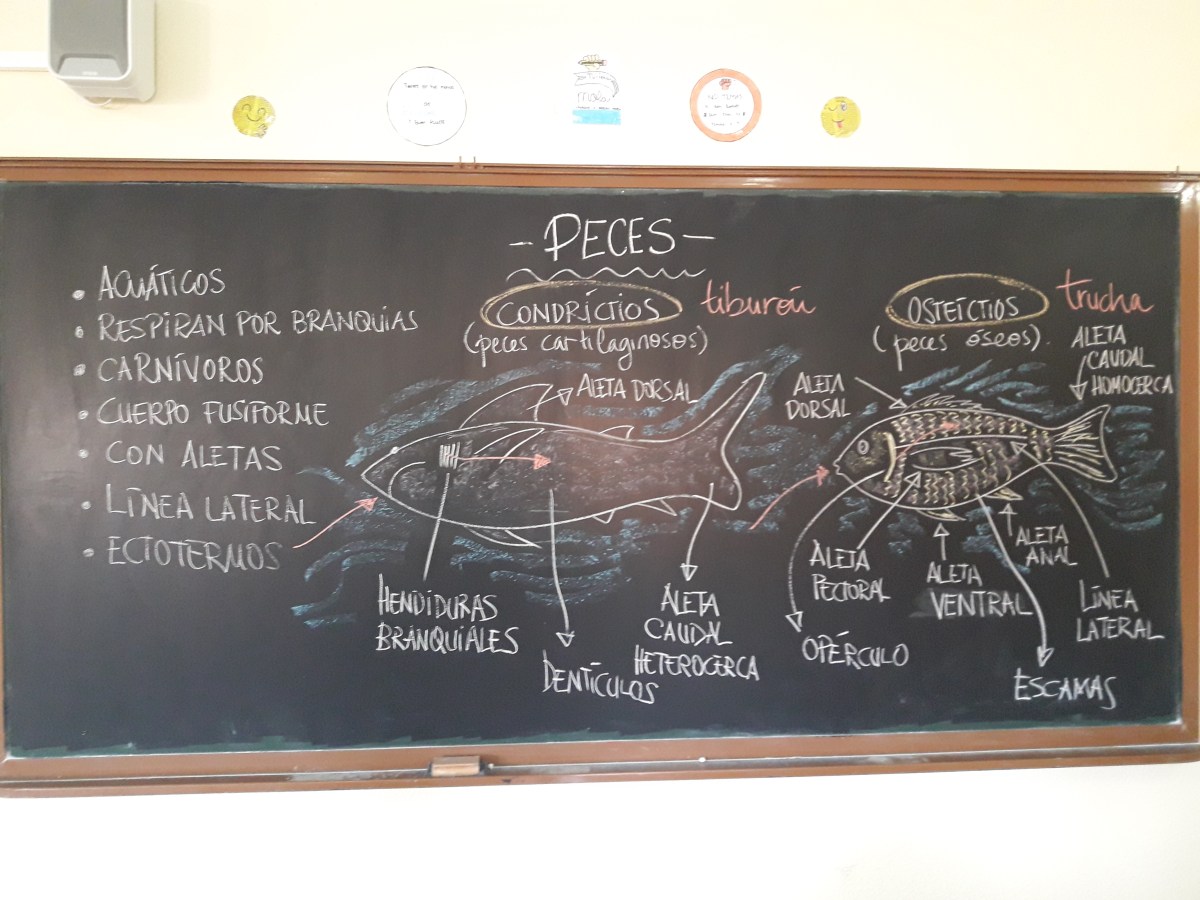 - PECES -
• ACUÁTICOS
• RESPIRAN POR BRANQUIAS
• CARNÍVOROS
• CUERPO FUSIFORME
• CON ALETAS
• LÍNEA LATERAL
• ECTOTERMOS
CONDRÍCTIOS tiburón
(peces cartilaginosos)
ALETA DORSAL
HENDIDURAS
BRANQUIALES
DENTÍCULOS
ALETA
CAUDAL
HETEROCERCA
OSTEÍCTIOS trucha
(peces óseos).
ALETA
CAUDAL
HOMOCERCA
ALETA
DORSAL
ALETA
PECTORAL
ALETA
VENTRAL
ALETA
ANAL
LÍNEA
LATERAL
OPÉRCULO
ESCAMAS